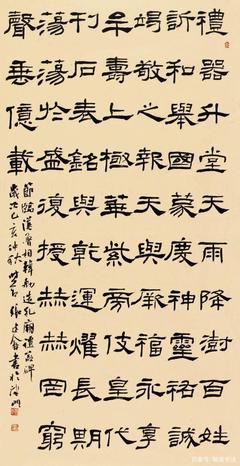 禮器升堂天雨降澍百姓
訢和舉國蒙慶神靈祐誠
竭敬之報天與厥福永享
牟壽上極華紫旁伎皇代
刊石表銘與乾運燿長期
蕩蕩於盛復授赫赫罔窮
聲垂億載
節臨漢魯相韓勑造孔廟禮器碑
歲次己亥仲秋 張建會書於